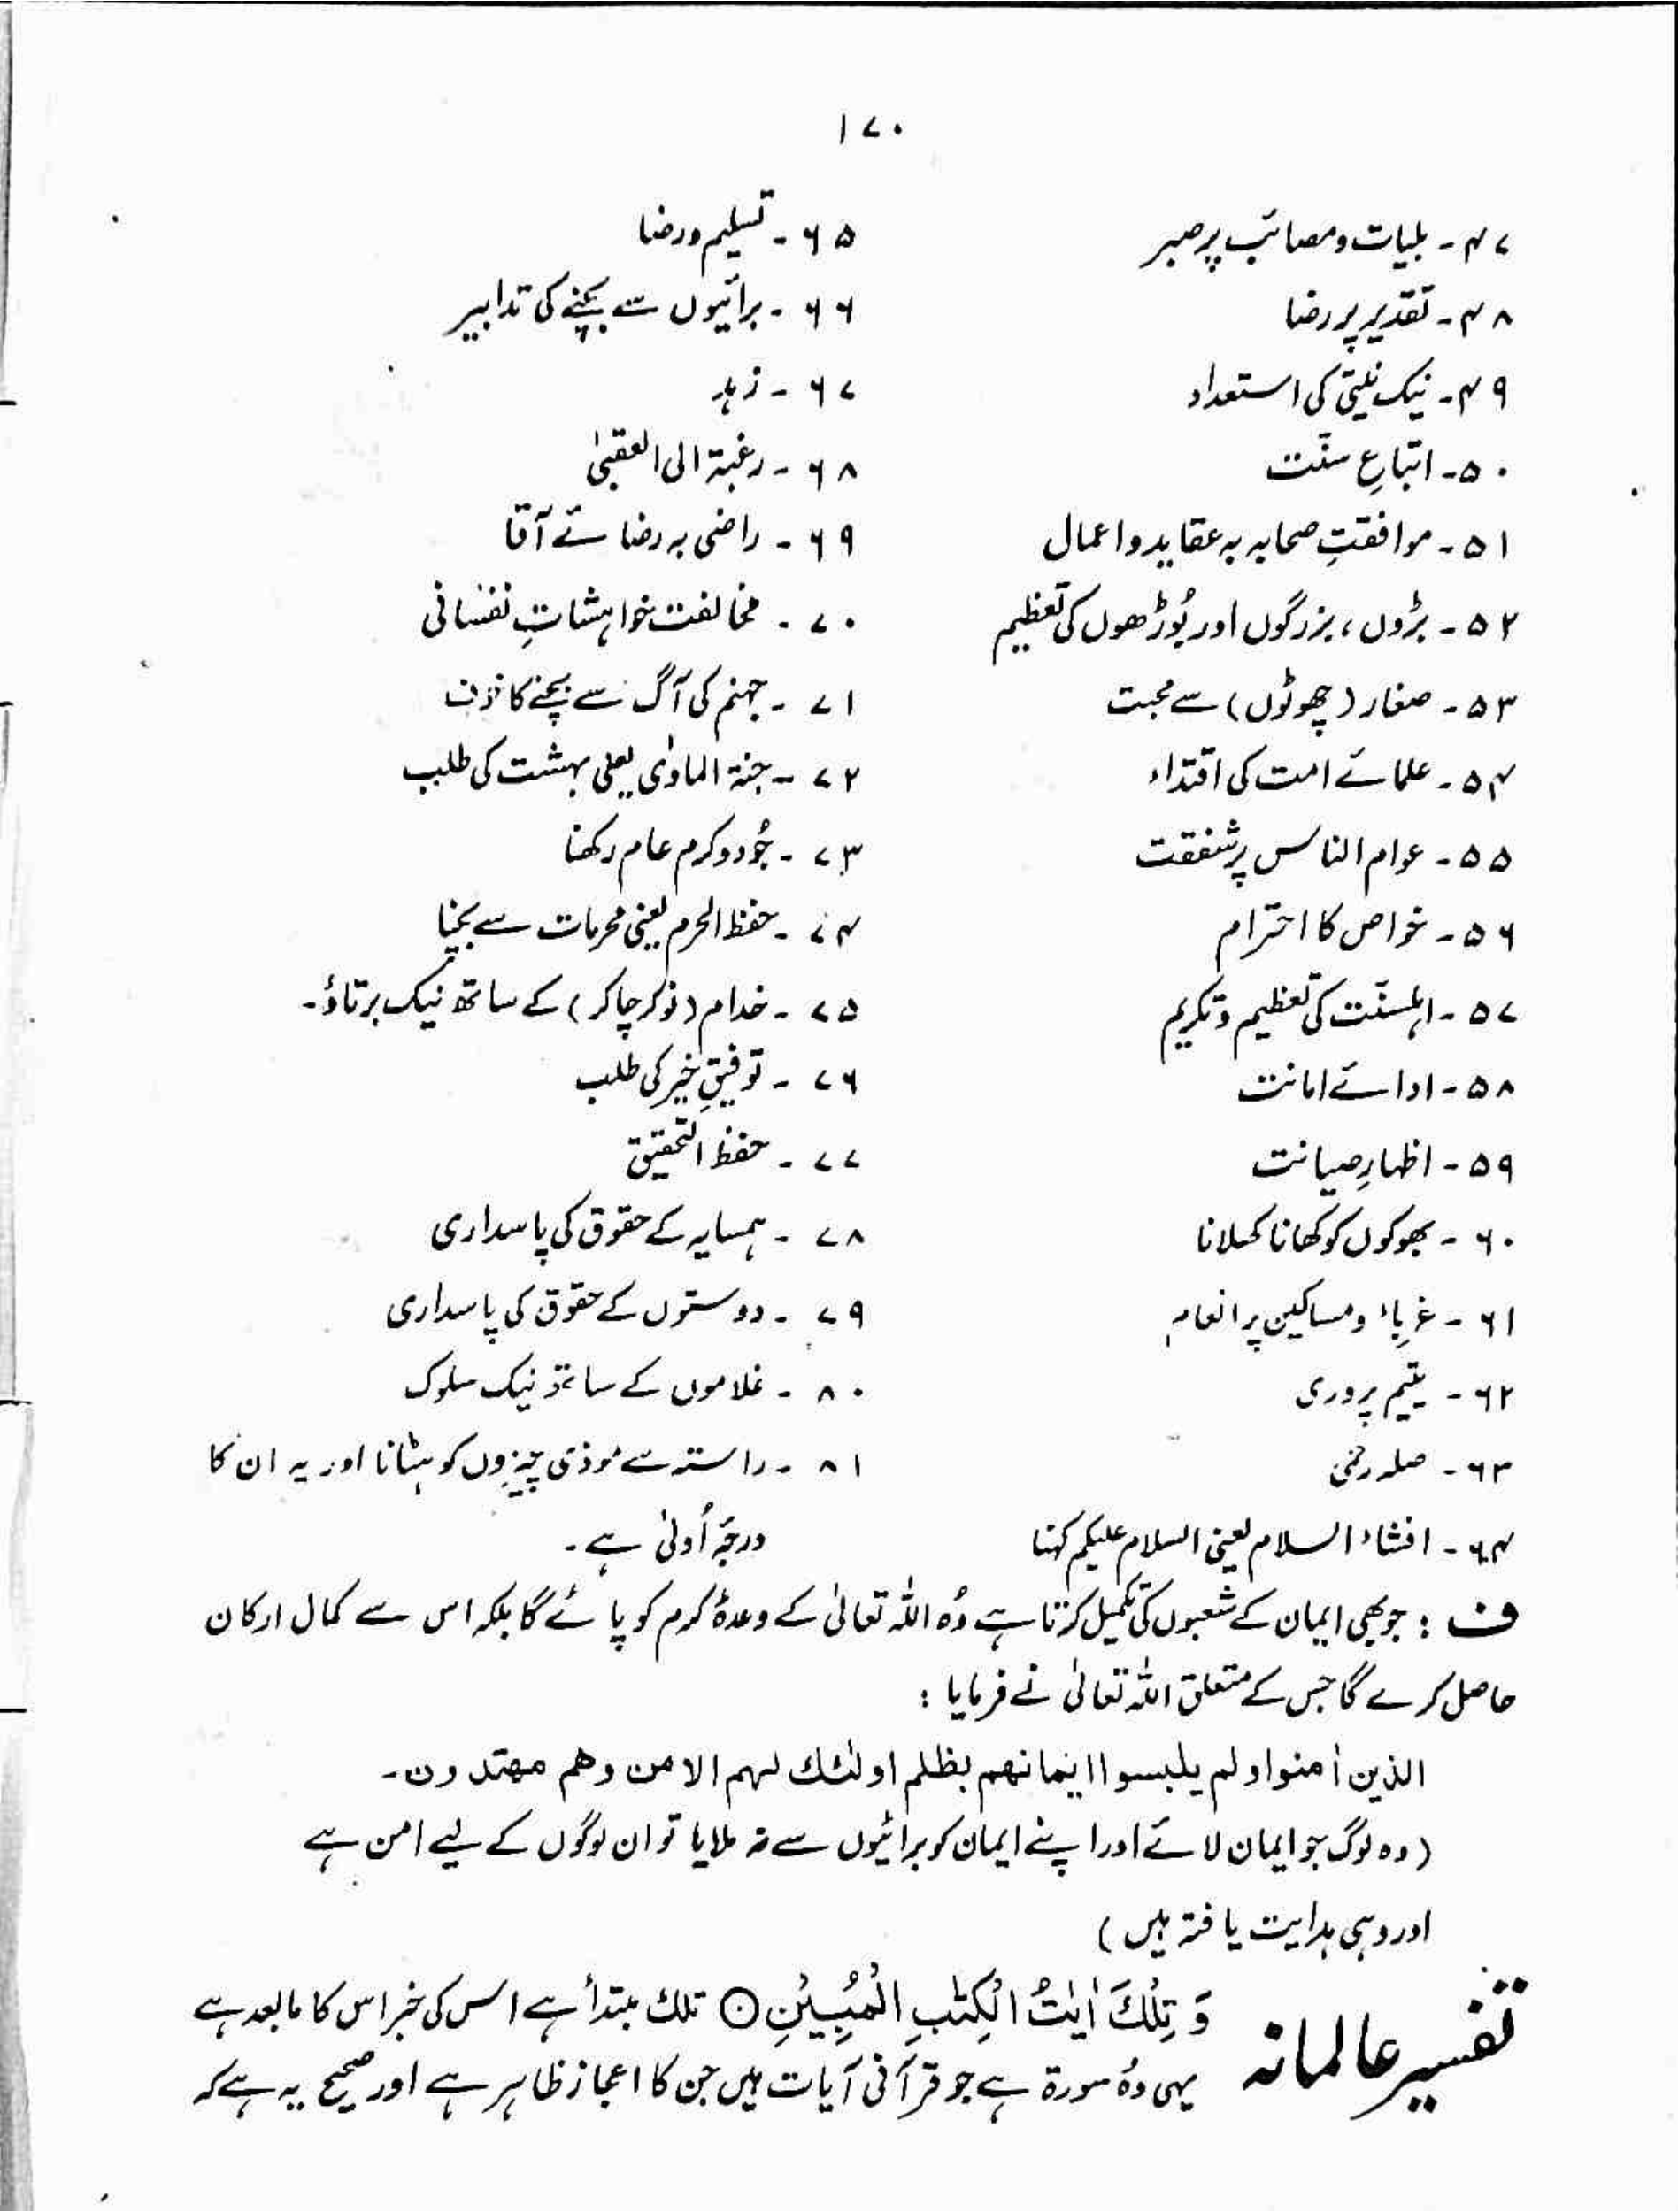 ۱۷۰
۴۷ - بلیات و مصائب پر صبر
۴۸ - تقدیر پر رضا
۴۹ - نیک نیتی کی استعداد
۵۰ - اتباعِ سنّت
۵۱ - موافقتِ صحابہ بہ عقاید و اعمال
۵۲ - بڑوں ، بزرگوں اور بُوڑھوں کی تعظیم
۵۳ - صغار ( چھوٹوں ) سے محبت
۵۴ - علمائے امت کی اقتداء
۵۵ - عوام الناس پر شفقت
۵۶ - خواص کا احترام
۵۷ - اہلسنّت کی تعظیم و تکریم
۵۸ - ادائے امانت
۵۹ - اظہارِ صیانت
۶۰ - بھوکوں کو کھانا کھلانا
۶۱ - غرباء و مساکین پر انعام
۶۲ - یتیم پروری
۶۳ - صلہ رحمی
۶۴ - افشاء السلام یعنی السلام علیکم کہنا
۶۵ - تسلیم و رضا
۶۶ - برائیوں سے بچنے کی تدابیر
۶۷ - زہد
۶۸ - رغبۃ الی العقبیٰ
۶۹ - راضی بہ رضائے آقا
۷۰ - مخالفت خواہشاتِ نفسانی
۷۱ - جہنم کی آگ سے بچنے کا خوف
۷۲ - جنۃ الماوٰی یعنی بہشت کی طلب
۷۳ - جُود و کرم عام رکھنا
۷۴ - حفظ الحرم یعنی محرمات سے بچنا
۷۵ - خدام ( نوکر چاکر ) کے ساتھ نیک برتاؤ۔
۷۶ - توفیقِ خیر کی طلب
۷۷ - حفظ التحقیق
۷۸ - ہمسایہ کے حقوق کی پاسداری
۷۹ - دوستوں کے حقوق کی پاسداری
۸۰ - غلاموں کے ساتھ نیک سلوک
۸۱ - راستہ سے موذی چیزوں کو ہٹانا اور یہ ان کا
درجۂ اُولیٰ ہے۔
ف : جو بھی ایمان کے شعبوں کی تکمیل کرتا ہے وُہ اللہ تعالیٰ کے وعدۂ کرم کو پائے گا بلکہ اس سے کمال ارکان
حاصل کرے گا جس کے متعلق اللہ تعالیٰ نے فرمایا :
الذین اٰمنوا ولم یلبسوا ایمانھم بظلم اولٰئک لہم الامن وھم مھتدون۔
( وہ لوگ جو ایمان لائے اور اپنے ایمان کو برائیوں سے نہ ملایا تو ان لوگوں کے لیے امن ہے
اور وہی ہدایت یافتہ ہیں )
تفسیر عالمانہ
وَ تِلْكَ اٰیٰتُ الْكِتٰبِ الْمُبِیْنِ ○ تلك مبتدأ ہے اس کی خبر اس کا مابعد ہے
یہی وُہ سورۃ ہے جو قرآنی آیات ہیں جن کا اعجاز ظاہر ہے اور صحیح یہ ہے کہ